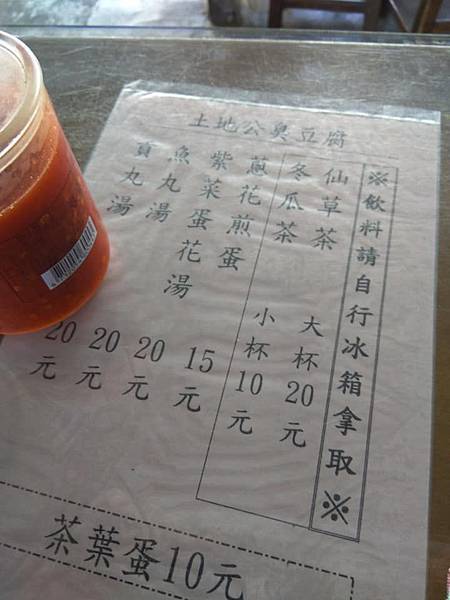 土地公臭豆腐
※飲料請自行冰箱拿取※
仙草茶 大杯20元
冬瓜茶 小杯10元
蔥花煎蛋 15元
紫菜蛋花湯 20元
魚丸湯 20元
貢丸湯 20元
茶葉蛋10元